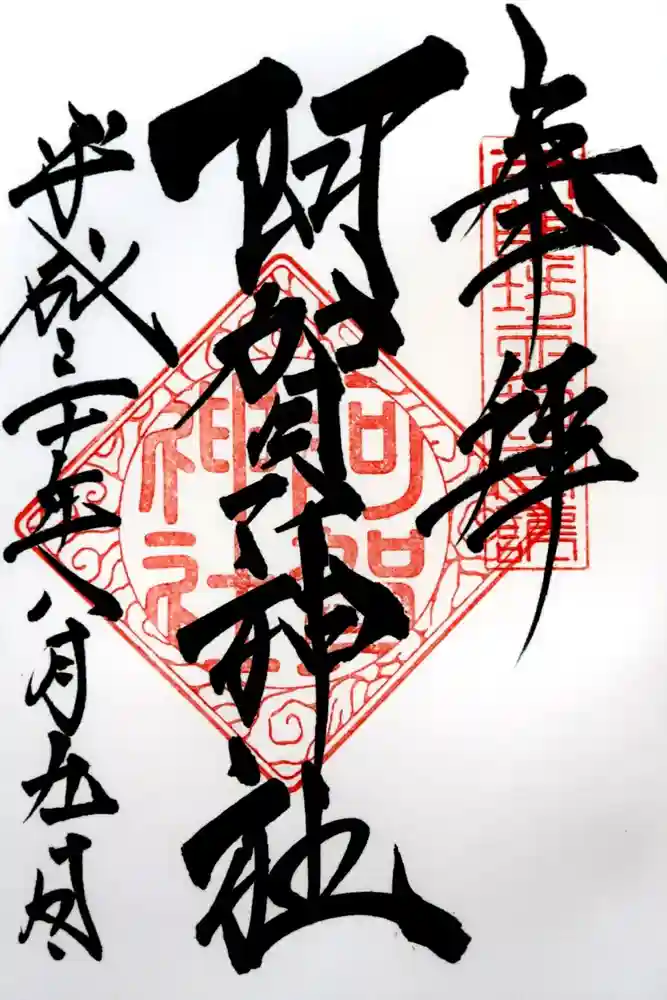 奉拝
阿賀神社
阿賀
神社
平成三十年八月九日